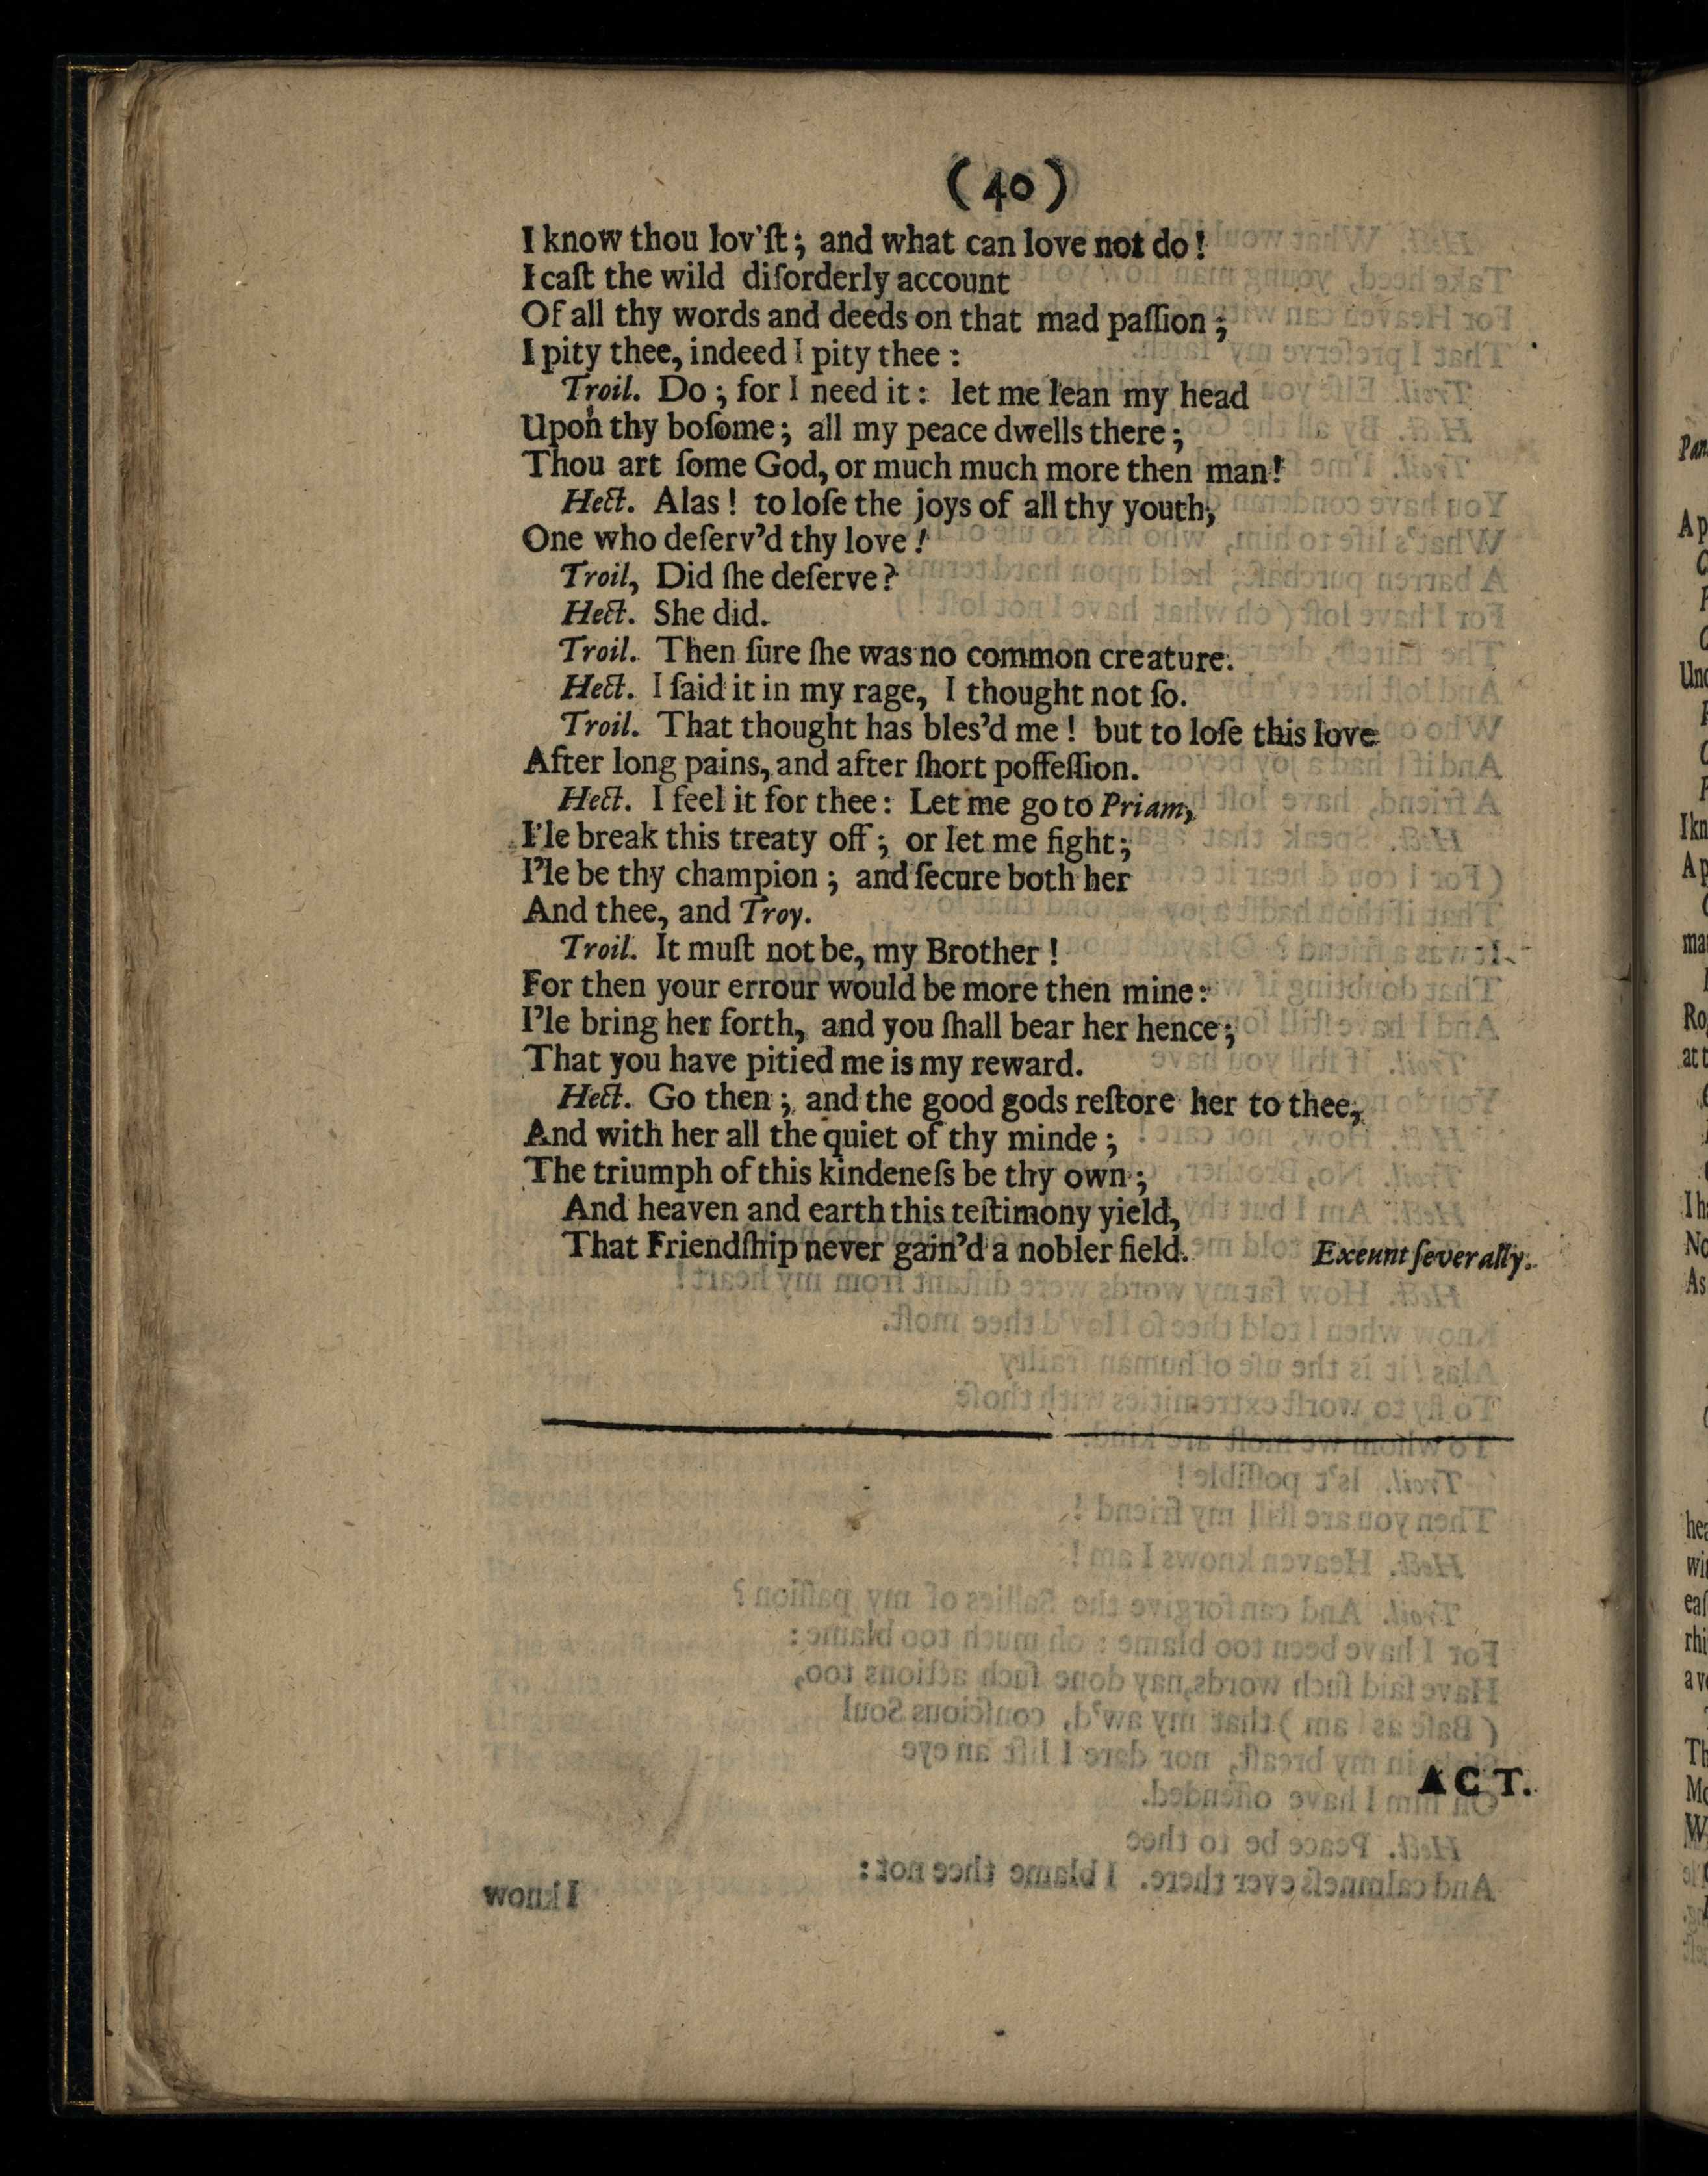 (40)
I know thou lov'ſt; and what can love not do!
I caſt the wild diſorderly account
Of all thy words and deeds on that mad paſſion;
I pity thee, indeed I pity thee:
Troil. Do; for I need it: let me lean my head
Upon thy boſome; all my peace dwells there;
Thou art ſome God, or much much more then man!
Hect. Alas! to loſe the joys of all thy youth,
One who deſerv'd thy love!
Troil, Did ſhe deſerve?
Hect. She did.
Troil. Then ſure ſhe was no common creature.
Hect. I ſaid it in my rage, I thought not ſo.
Troil. That thought has bles'd me! but to loſe this love
After long pains, and after ſhort poſſeſſion.
Hect. I feel it for thee: Let me go to Priam,
I'le break this treaty off; or let me fight;
I'le be thy champion; and ſecure both her
And thee, and Troy.
Troil. It muſt not be, my Brother!
For then your errour would be more then mine:
I'le bring her forth, and you ſhall bear her hence;
That you have pitied me is my reward.
Hect. Go then; and the good gods reſtore her to thee,
And with her all the quiet of thy minde;
The triumph of this kindeneſs be thy own;
And heaven and earth this teſtimony yield,
That Friendſhip never gain'd a nobler field.
Exeunt ſeverally.
ACT.